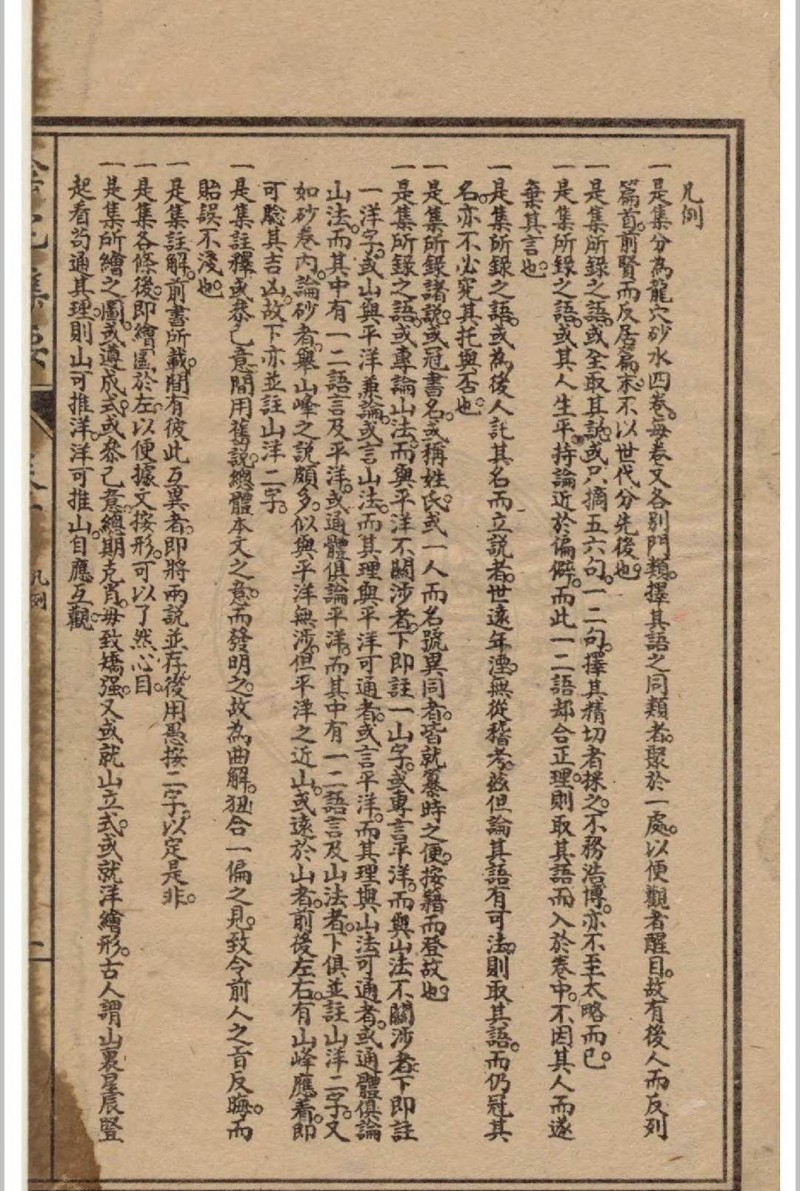 凡例
一是集分為龍穴砂水四卷。每卷又各別門類。擇其語之同類者。聚於一處。以便觀者醒目。故有後人而反列
篇首。前賢而反居篇末。不以世代分先後也。
一是集所錄之語。或全取其說。或只摘五六句。一二句。擇其精切者採之。不務浩博。亦不至太略而已。
一是集所錄之語。或其人生平持論近於偏僻。而此一二語却合正理。則取其語而入於卷中。不因其人而遂
棄其言也。
一是集所錄之語。或為後人託其名而立說者。世遠年湮。無從稽考。茲但論其語有可法。則取其語。而仍冠其
名。亦不必究其托與否也。
一是集所錄諸說。或冠書名。或稱姓氏。或一人而名號異同者。皆就纂時之便。按籍而登故也。
一是集所錄之語。或專論山法。而與平洋不關涉者。下即註一山字。或專言平洋。而與山法不關涉者。下即註
一洋字。或山與平洋兼論。或言山法。而其理與平洋可通者。或言平洋。而其理與山法可通者。或通體俱論
山法。而其中有一二語言及平洋。或通體俱論平洋。而其中有一二語言及山法者。下俱並註山洋二字。又
如砂卷內。論砂者。舉山峰之說頗多。似與平洋無涉。但平洋之近山。或遠於山者。前後左右。有山峰應着。即
可驗其吉凶。故下亦並註山洋二字。
一是集註釋。或叅己意。間用舊說。總體本文之意。而發明之。故為曲解。扭合一偏之見。致令前人之旨反晦。而
貽誤不淺也。
一是集註解。前書所載。間有彼此互異者。即將兩說並存。後用愚按二字。以定是非。
一是集各條後。即繪圖於左。以便據文按形。可以了然心目。
一是集所繪之圖。或遵成式。或叅己意。總期克肖。毋致矯强。又或就山立式。或就洋繪形。古人謂山裏星辰豎
起看。苟通其理。則山可推洋。洋可推山。自應互觀。
凡例